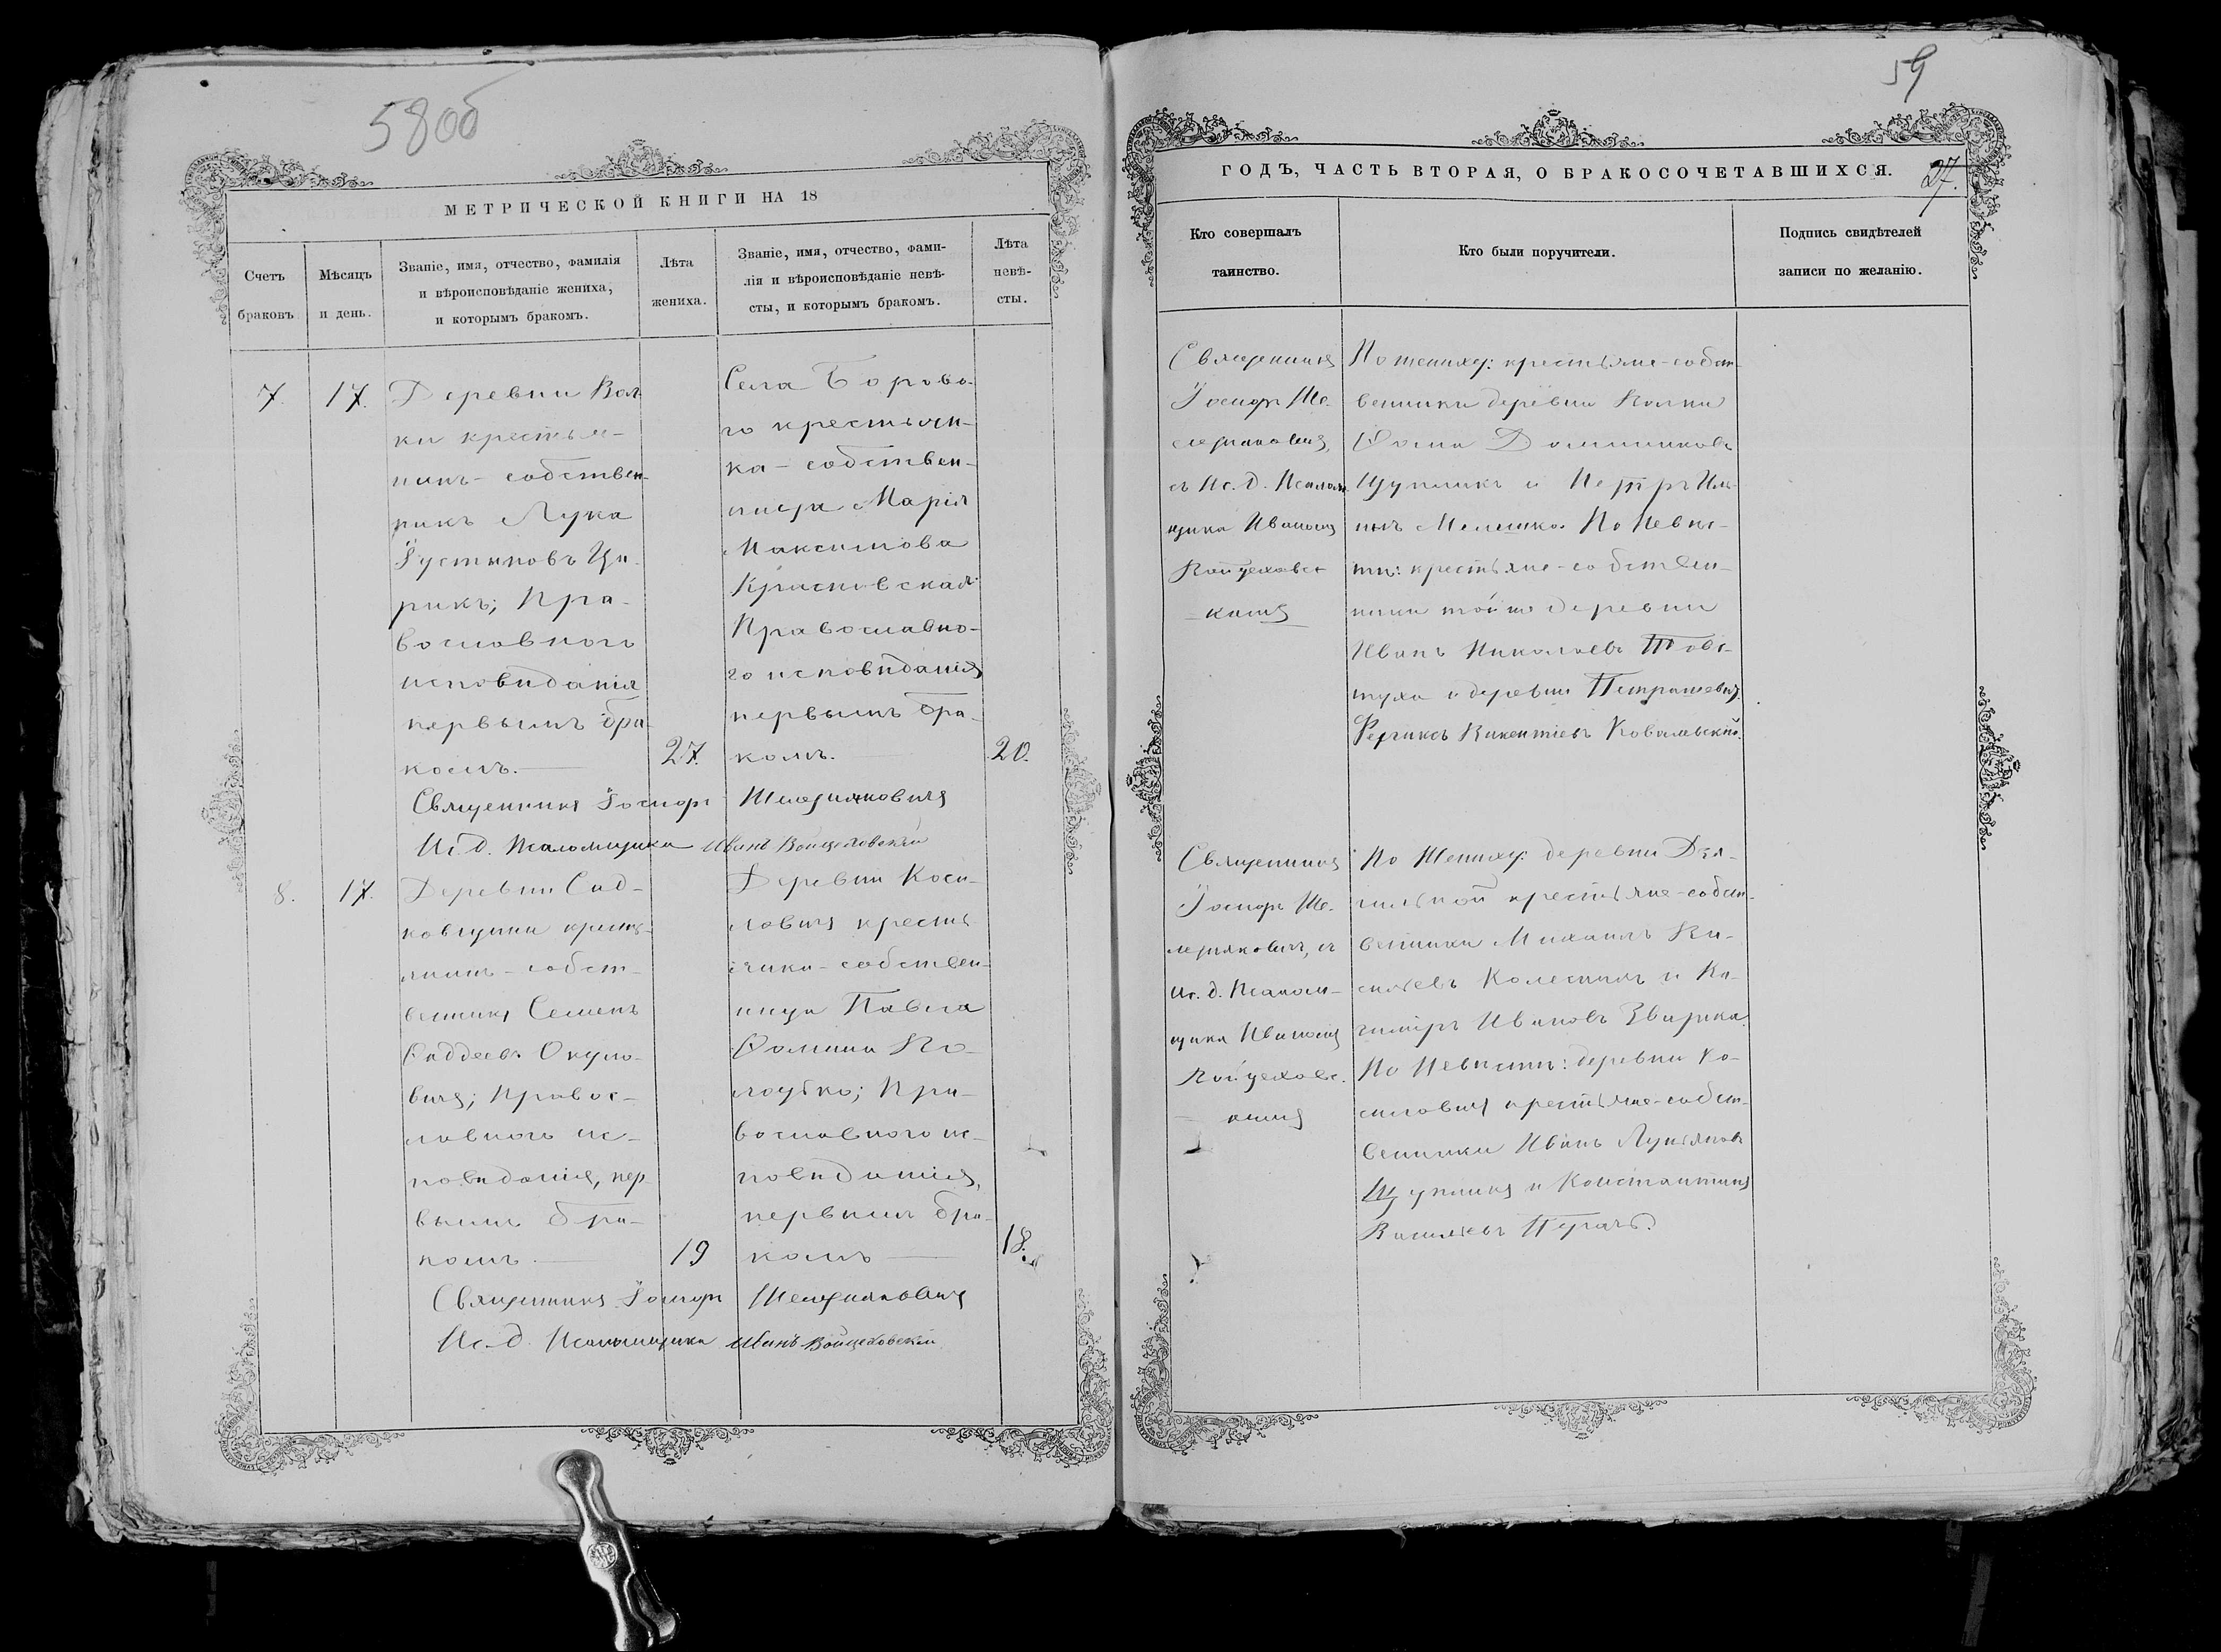 58об
МЕТРИЧЕСКОЙ КНИГИ НА 18
Счетъ браковъ.
Мѣсяцъ и день.
Званіе, имя, отчество, фамилія
и вѣроисповѣданіе жениха,
и которымъ бракомъ.
Лѣта жениха.
Званіе, имя, отчество, фами-
лія и вѣроисповѣданіе невѣ-
сты, и которымъ бракомъ.
Лѣта невѣ-
сты.
7.
17.
Деревни Вол-
ки крестья-
нинъ-собствен-
никъ Лука
Іустиновъ Цу-
рикъ; Пра-
вославного
исповѣданія
первымъ бра-
комъ.
27.
Села Борово-
го крестьян-
ка-собствен-
ница Марія
Максимова
Красновская
Православно-
го исповѣданія
первымъ бра-
комъ.
20.
Священникъ Іосифъ
Ис. д. Псаломщика Иванъ Войцеховскій
8.
17.
Деревни Сад-
ковщини кресть-
янинъ-собст-
венникъ Семенъ
Фаддеевъ Окуло-
вичъ; Правос-
лавного ис-
повѣданія, пер-
вымъ бра-
комъ.
19
Деревни Коси-
ловичъ кресть-
янка-собствен-
ница Павла
Фомина Го-
лоубко; Пра-
вославного ис-
повѣданія,
первымъ бра-
комъ
18.
Священникъ Іосифъ
Ис. д. Псаломщика Иванъ Войцеховскій
59
ГОДЪ, ЧАСТЬ ВТОРАЯ, О БРАКОСОЧЕТАВШИХСЯ.
27.
Кто совершалъ
таинство.
Кто были поручители.
Подпись свидѣтелей
записи по желанію.
Священникъ
Іосифъ Ше-
съ Ис. д. Псалом-
щика Иваномъ
Войцеховс-
кимъ
По жениху: крестьяне-собст-
венники деревни Волки
Фома Доминиковъ
Цупликъ и Петръ Иль-
инъ Мелешко. По Невѣс-
тѣ: крестьяне-собствен-
ники той же деревни
Иванъ Николаевъ Товс-
туха и деревни Петрашевичъ
Феликсъ Викентіевъ Ковальскій.
Священникъ
Іосифъ Ше-
съ
Ис. д. Псалом-
щика Иваномъ
Войцеховс-
кимъ
По Жениху: деревни Дя-
гильной крестьяне-собст-
венники Михаилъ Ва-
сильевъ Колесникъ и Ка-
зиміръ Ивановъ Зварика.
По Невѣстѣ: деревни Ко-
силовичъ крестьяне-собст-
венники Иванъ Лукьяновъ
Щупликъ и Константинъ
Васильевъ Пугачъ.